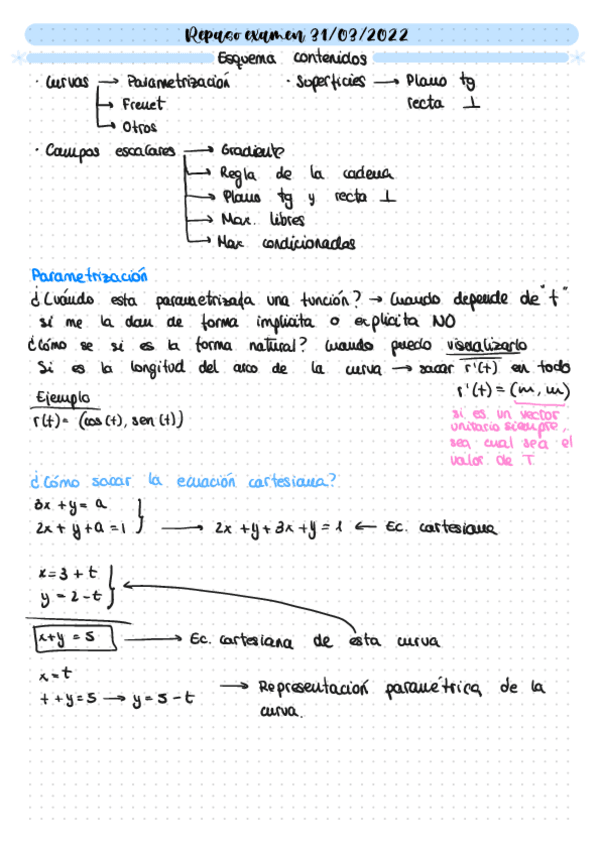 Repaso examen 31/03/2022
Esquema contenidos
· Curvas → Parametrización · Superficies → Plano tg
→ Frenet recta ⊥
→ Otros
· Campos escalares → Gradiente
→ Regla de la cadena
→ Plano tg y recta ⊥
→ Max. libres
→ Max condicionados
Parametrización
¿Cuándo esta parametrizada una función? → Cuando depende de "t"
si me la dan de forma implícita o explícita NO
¿Cómo se si es la forma natural? Cuando puedo visualizarlo
Si es la longitud del arco de la curva → sacar r'(t) en todo
r'(t) = (m, m)
Ejemplo
r(t) = (cos(t), sen(t))
si es un vector
unitario siempre,
sea cual sea el
valor de T
¿Cómo sacar la ecuación cartesiana?
3x + y = a
2x + y + a = 1 } → 2x + y + 3x + y = 1 ← Ec. cartesiana
x = 3 + t
y = 2 - t }
x+y = 5 → Ec. cartesiana de esta curva
x = t
t + y = 5 → y = 5 - t → Representación paramétrica de la
curva.